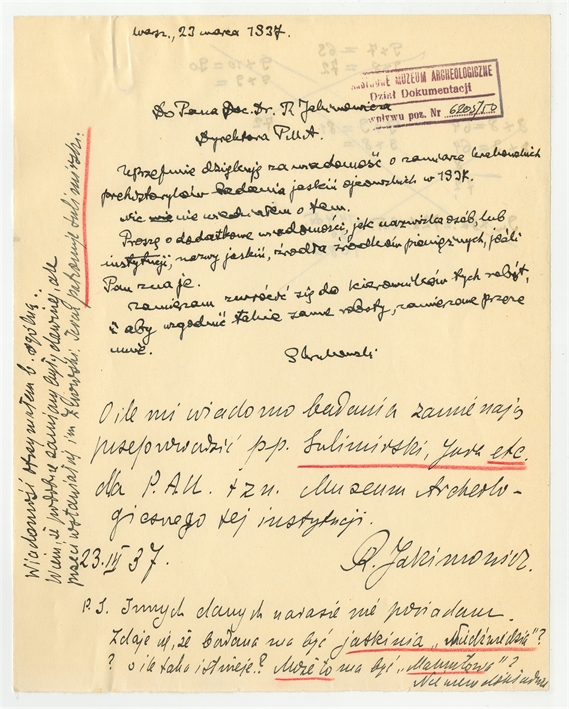 Warsz., 23 marca 1937.
PAŃSTWOWE MUZEUM ARCHEOLOGICZNE
Dział Dokumentacji
wpływu poz. Nr
Do Pana Doc. Dr. R. Jakimowicza
Dyrektora P.M.A.
Uprzejmie dziękuję za wiadomość o zamiarze krakowskich
prehistoryków badania jaskiń ojcowskich w 1937.
nic nie wiedziałem o tem.
Proszę o dodatkowe wiadomości, jak nazwiska osób, lub
instytucji, nazwy jaskiń, źródła środków pieniężnych, jeśli
Pan zna je.
Zamierzam zwrócić się do kierowników tych robót,
aby uzgodnić takie same roboty, zamierzone przeze
mnie.
S Krukowski
O ile mi wiadomo badania zamierzają
przeprowadzić pp. Sulimirski, Jura etc.
dla P.A.U. tzn. Museum Archeolo-
gicznego tej instytucji.
23.III 37. R. Jakimowicz.
P.S. Innych danych narazie nie posiadam.
Zdaje się, że badana ma być jaskinia „Niedźwiedzia"?
? o ile taka istnieje? Może to ma być „Mamutowa"?
Wiadomość otrzymałem b. ogólną.
Wiem, że podobne zamiary były dawniej, ale